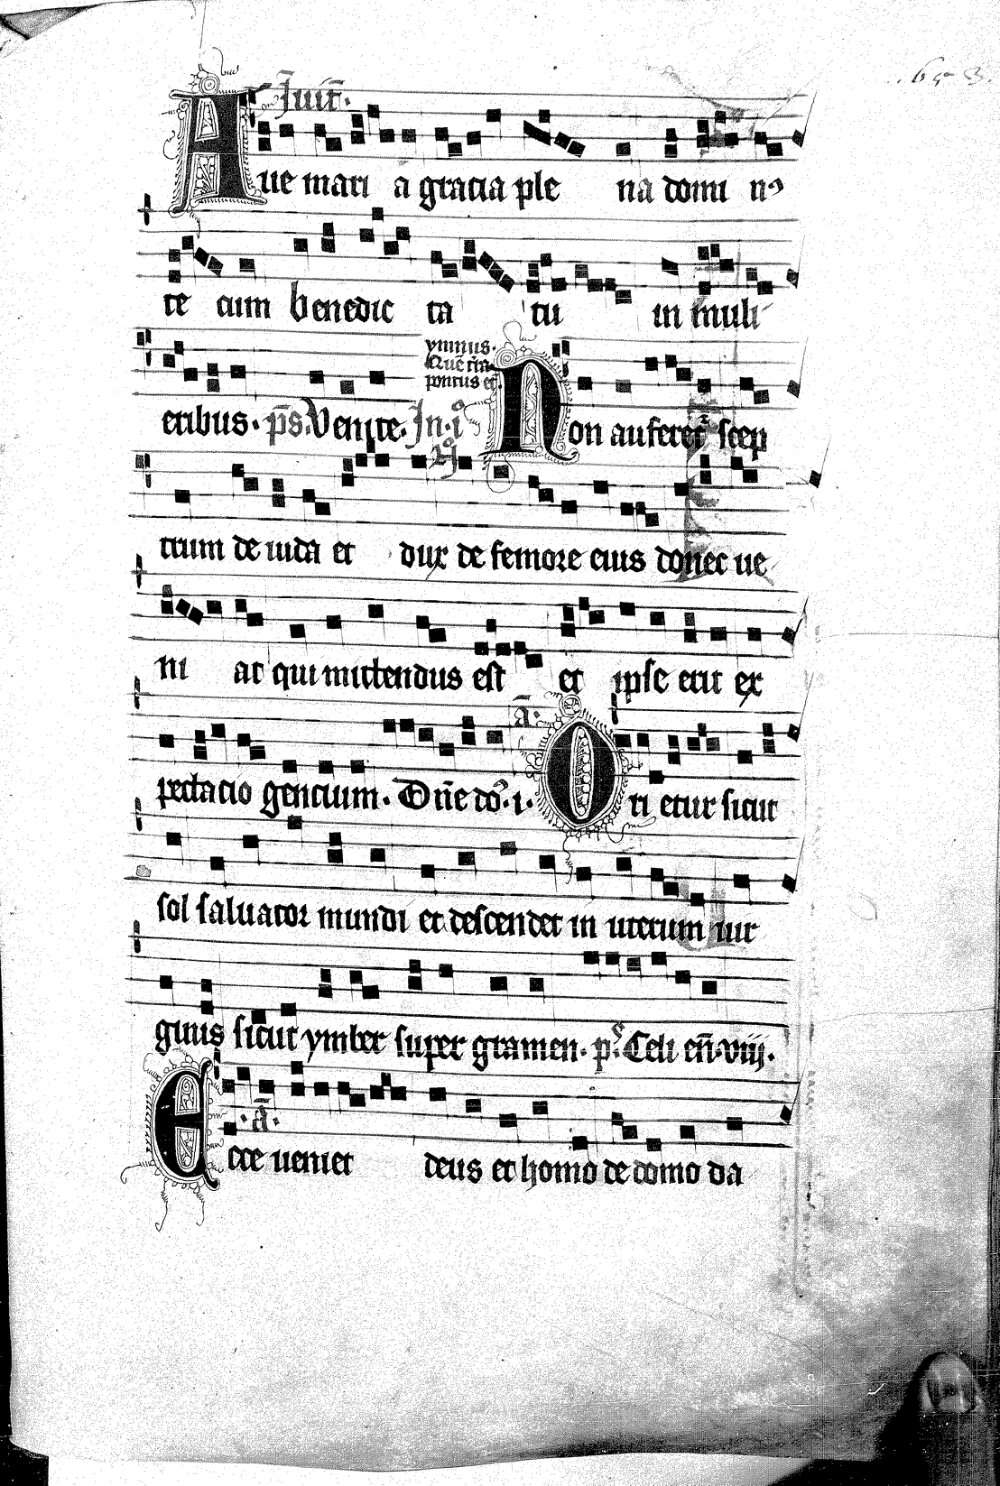 Juit̄.
Aue mari a gracia ple na domi nꝰ
te cum benedic ta tu in muli
ymnus.
Que t̄ra
pontus et
eribus. p̄s. Venite. In .i°
Non auferet᷑ scep
trum de iuda et dux de femore eius donec ue
ni at qui mittendus est et ipse erit ex
ā.
pectacio gencium. Dn̄e dō. i. Ori etur sicut
sol saluator mundi et descendet in uterum uir
ginis sicut ymber super gramen. p̄s. Celi en̄. viij.
ā.
Ecce ueniet deus et homo de domo da